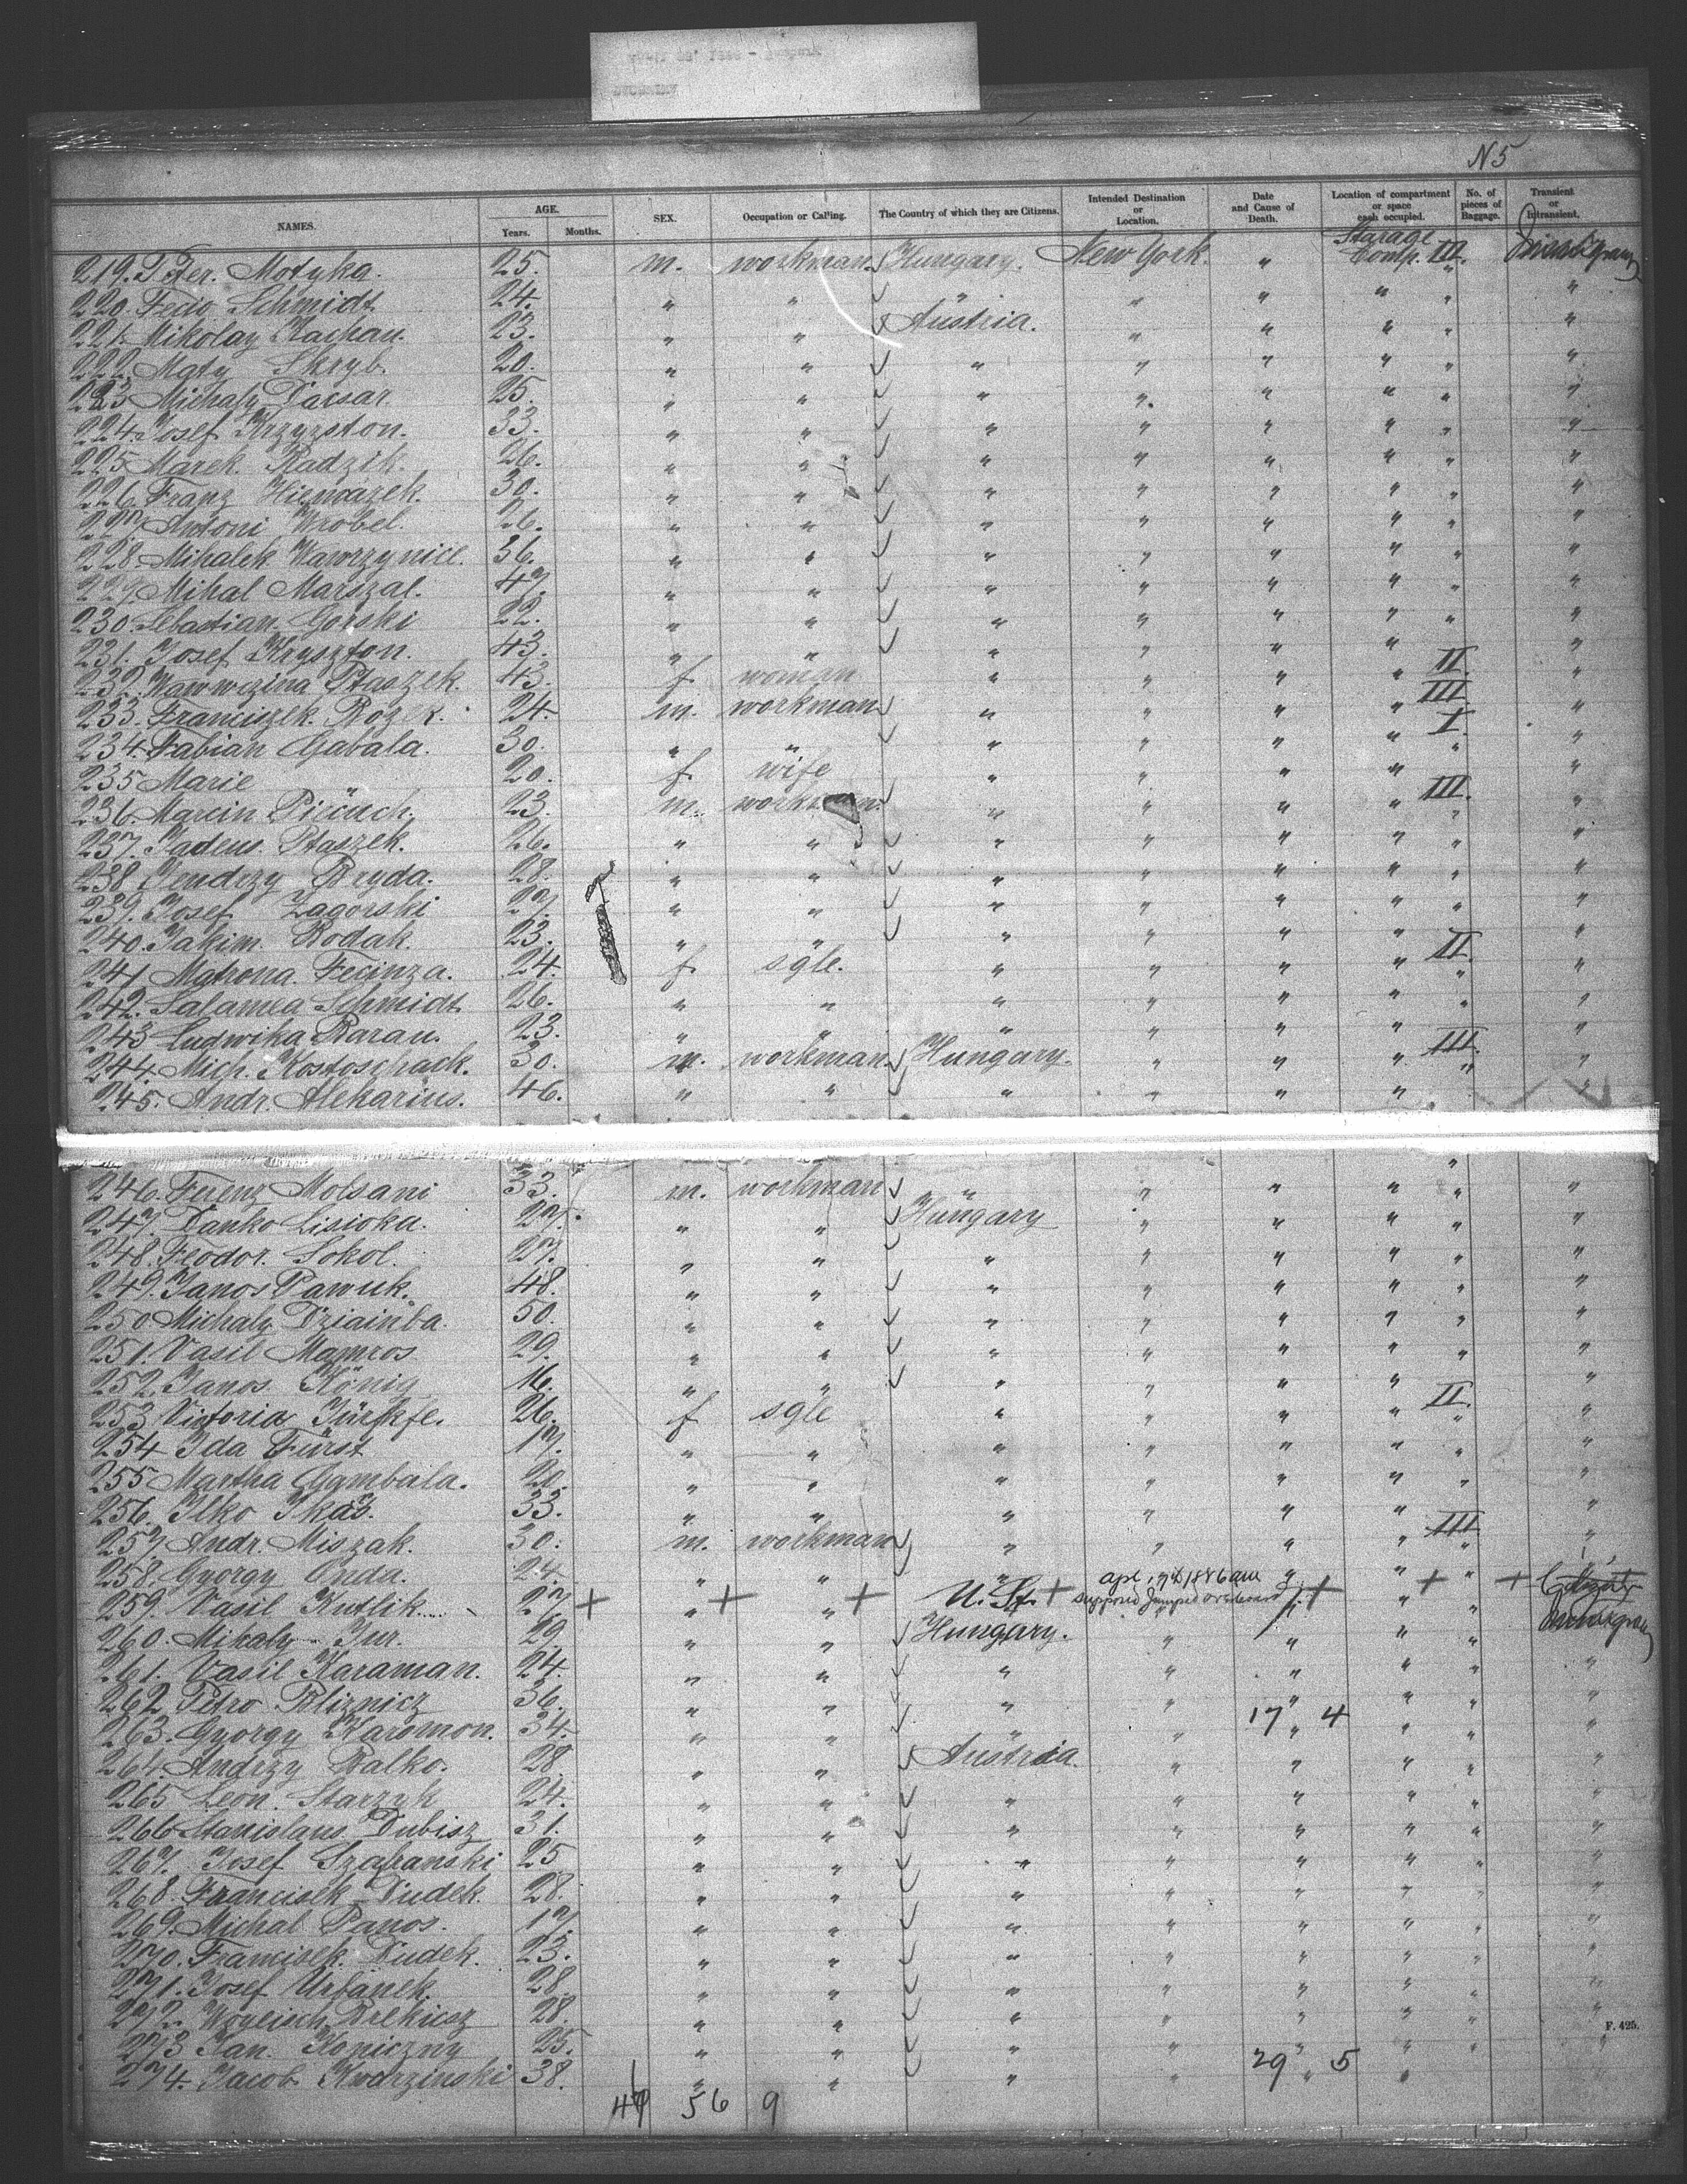 N5
NAMES. AGE. Years. Months. SEX. Occupation or Calling. The Country of which they are Citizens. Intended Destination or Location. Date and Cause of Death. Location of compartment or space each occupied. No. of pieces of Baggage. Transient or Intransient.
219. Peter. Motyka. 25. m. workman. Hungary. New York. " Starage Comp. III.
220. Fecio Schmidt 24. " " " " " " " "
221. Mikolay Kachan. 23. " " Austria. " " " " "
222. Maty Skryb. 20. " " " " " " " "
223 Michaly Dacsar 25. " " " " " " " "
224. Josef Krzyzston. 33. " " " " " " " "
225 Marek. Radzik. 26. " " " " " " " "
226. Franz 30. " " " " " " " "
227. Antoni Wrobel. 26. " " " " " " " "
228. Mihalek Wawrzynice. 36. " " " " " " " "
229. Mihal Marszal. 47. " " " " " " " "
230. Sebastian Gorski 22. " " " " " " " "
231. Josef Kryszton. 43. " " " " " " "
232. Wawwezina Ptaszek. 43. f. woman " " " " II. "
233. Franciszek. Rozek. 24. m. workman " " " " III "
234. Fabian Gabala. 30. " " " " " " I. " "
235 Marie 20. f. wife " " " " "
236. Marcin Pieuch. 23. m. workman. " " " III. " "
237. Tadeus. Ptaszek. 26. " " " " " " " "
238. Jendrzy Bryda. 28. " " " " " " " "
239. Josef Zagorski 27. " " " " " " " "
240. Jakim. Bodak. 23. " " " " " " "
241 Matrona. Fecinza. 24. f. sgle. " " " " II. " "
242. Salamea Schmidt 26. " " " " " " " "
243 Ludwika Baran. 23. " " " " " " "
244. Mich. Kostoschack. 30. m. workman. Hungary. " " " III. " "
245. Andr. Alekarius. 46. " " " " " " "
246. Ferenz Molsani 33. m. workman " " " " " "
247. Danko Lisioka. 27. " " Hungary " " " " "
248. Feodor. Sokol. 27. " " " " " " " "
249. Janos Pawuk. 48. " " " " " " " "
250 Michaly Dziainba. 50. " " " " " " " "
251. Vasil Mamros 29. " " " " " " " "
252. Janos. König 16. " " " " " " "
253 Victoria 26. f sgle " " " " II. " "
254 Ida Fürst 17. " " " " " " " "
255 Martha Gambala. 20. " " " " " " " "
256. Ilko Ikas. 33. " " " " " " "
257. Andr. Miszak. 30. m. workman " " " " III " "
258. Gyorgy Onda. 24. " " " " " "
259. Vasil Kutlik 27. + " + " + U. St. + apl. 7th 1886 am supposed jumped overboard + " + " +
260. Mikaly Jur. 29. " " Hungary. " " " "
261. Vasil Karaman. 24. " " " " " " " "
262 Petro Bliznicz 36. " " " " " " " "
17 4
263. Gyorgy Karomon. 34. " " " " " " " "
264. Andrzy Balko. 28. " " Austria. " " " " "
265 Leon. Starzyk 24. " " " " " " " "
266 Stanislaus Dubisz 31. " " " " " " " "
267. Josef Szafranski 25 " " " " " " " "
268. Francisek Dudek. 28. " " " " " " " "
269. Michal Panos. 17. " " " " " " " "
270. Francisek. Dudek. 23. " " " " " " " "
271. Josef Urbanek. 28. " " " " " " " "
272. 28. " " " " " " " "
F. 425.
273 Jan. Koniczny 25. " " " " " " " "
29 5
274. Jacob Kwarzinski 38. " " " " " "
56 9